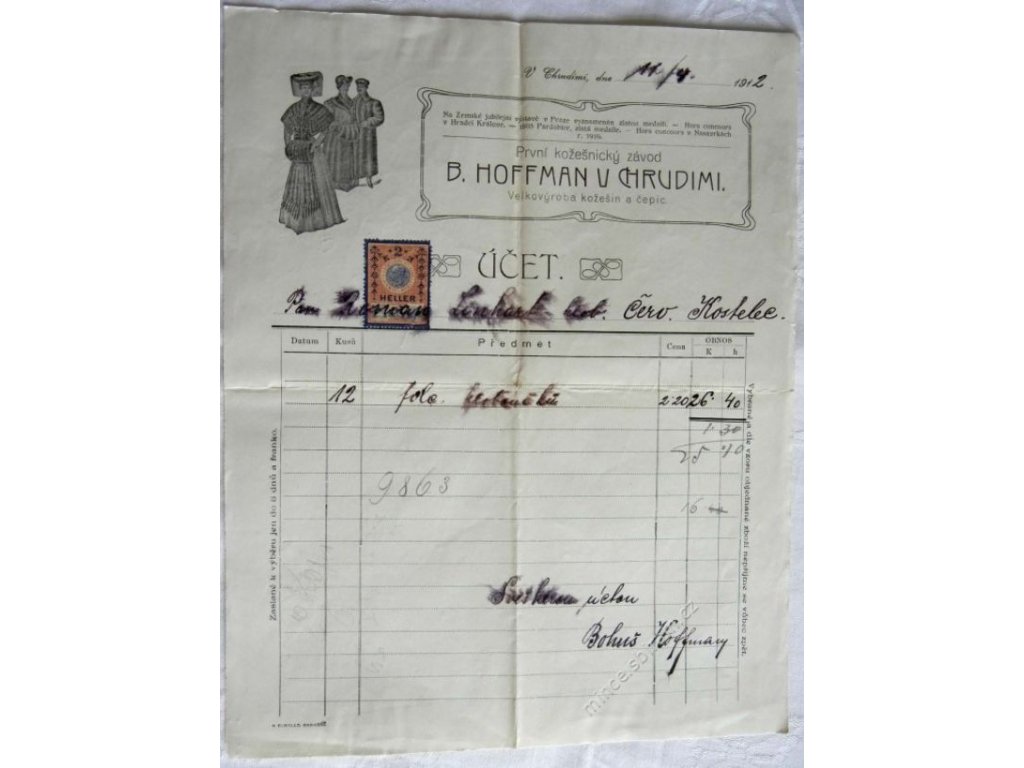 V Chrudimi, dne 1912.
Na Zemské jubilejní výstavě v Praze vyznamenán zlatou medailí. — Hors concours
v Hradci Králové. — 1903 Pardubice, zlatá medaile. — Hors concours v Nasavrkách
r. 1910.
První kožešnický závod
B. HOFFMAN V CHRUDIMI.
Velkovýroba kožešin a čepic.
2
HELLER
ÚČET.
Pan Roman Lenhart Červ. Kostelec.
Datum Kusů Předmět Cena OBNOS
K h
12 2·20 26· 40
1· 30
25 10
9863
16
Zaslané k výběru jen do 8 dnů a franko.
Vybrané a dle vzoru objednané zboží nepřijme se vůbec zpět.
úctou
Bohuš Hoffman
mince.so cz